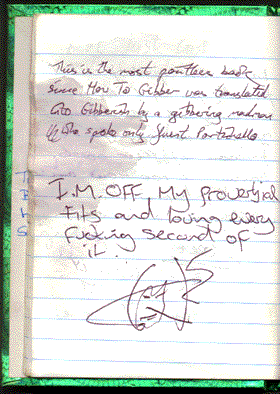 This is the most pointless book
since How To Gibber was translated
into Gibberish by a gibbering madman
who spoke only fluent
I.M. OFF My proverbial
tits and loving every
fucking second of
it.